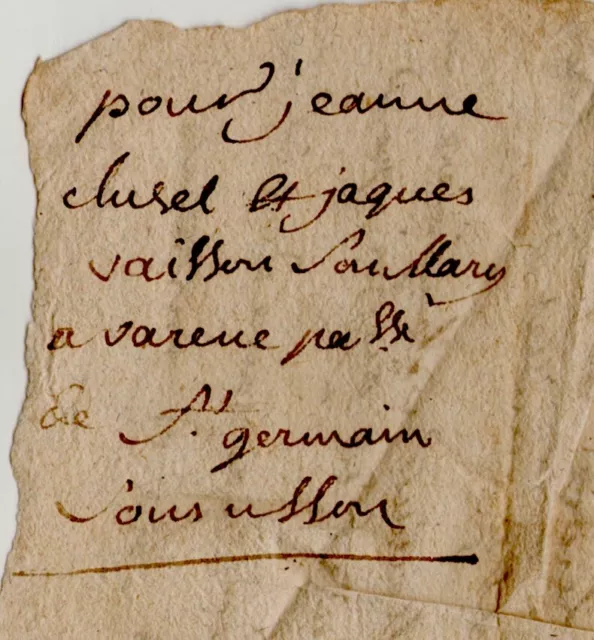 pour jeanne
clusel et jaques
vaisson son mary
a varene passé
de St. germain
sous usson